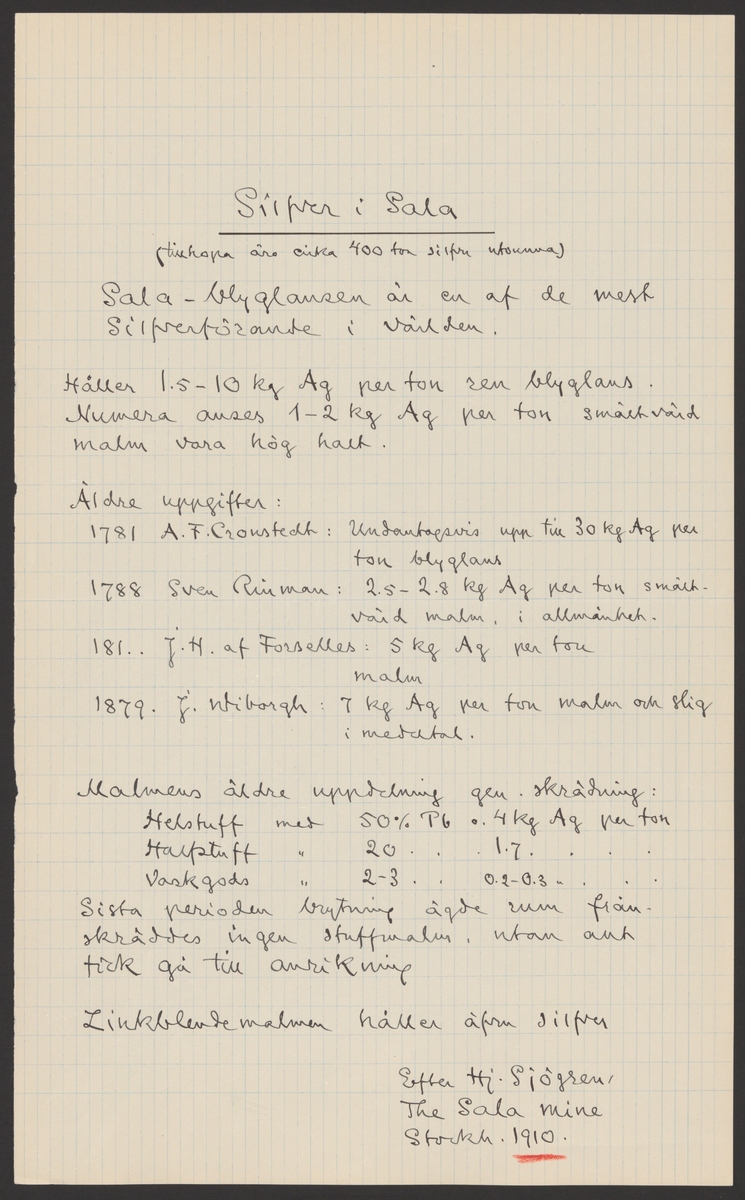 Silfver i Sala
(tillhopa äro cirka 400 ton silfver utvunna)
Sala-blyglansen är en af de mest
Silfverförande i världen.
Håller 1.5-10 kg Ag per ton ren blyglans.
Numera anses 1-2 kg Ag per ton smältvärd
malm vara hög halt.
Äldre uppgifter:
1781 A.F. Cronstedt: Undantagsvis upp till 30 kg Ag per
ton blyglans
1788 Sven Rinman: 2.5-2.8 kg Ag per ton smält-
värd malm, i allmänhet.
181.. J.H. af Forselles: 5 kg Ag per ton
malm
1879. J. Wiborgh: 7 kg Ag per ton malm och slig
i medeltal.
Malmens äldre uppdelning gen. skrädning:
Helstuff med 50% Pb o. 4 kg Ag per ton
Halfstuff " 20 . . 1.7 . . . .
Vaskgods " 2-3 . . 0.2-0.3 " . . .
Sista perioden brytning ägde rum från-
skräddes ingen stuffmalm, utan allt
fick gå till anrikning
Zinkblendemalmen håller äfven silfver
Efter Hj. Sjögren,
The Sala mine
Stockh. 1910.